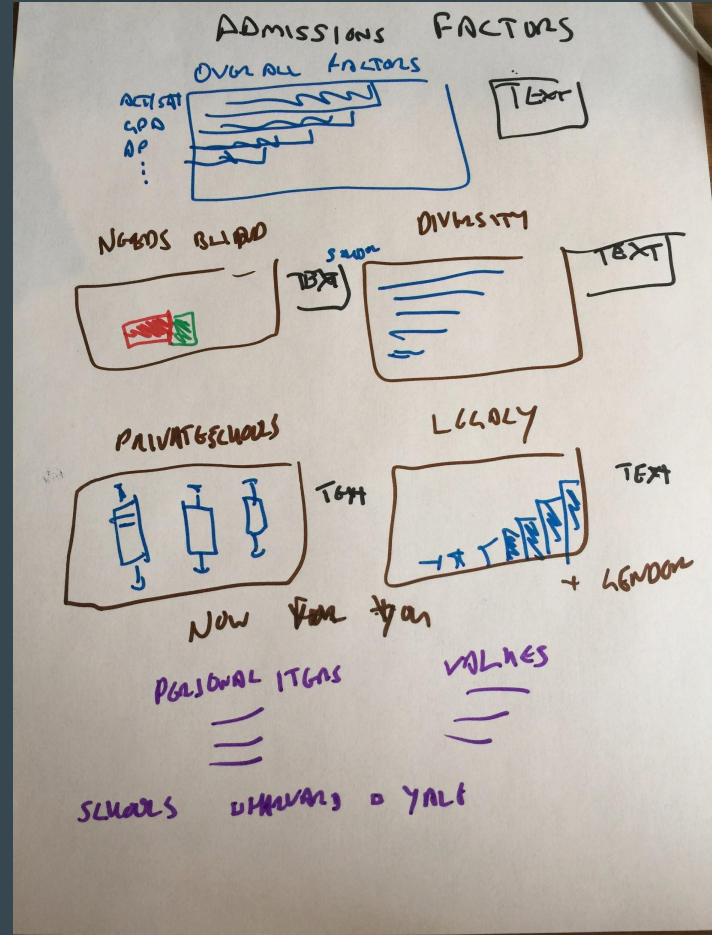 ADMISSIONS FACTORS
OVERALL FACTORS
ACT/SAT
GPA
AP
TEXT
NEEDS BLIND
TEXT
DIVERSITY
TEXT
PRIVATE SCHOOLS
TEXT
LEGACY
TEXT
+ GENDER
NOW FOR YOU
PERSONAL ITEMS
VALUES
SCHOOLS HARVARD YALE